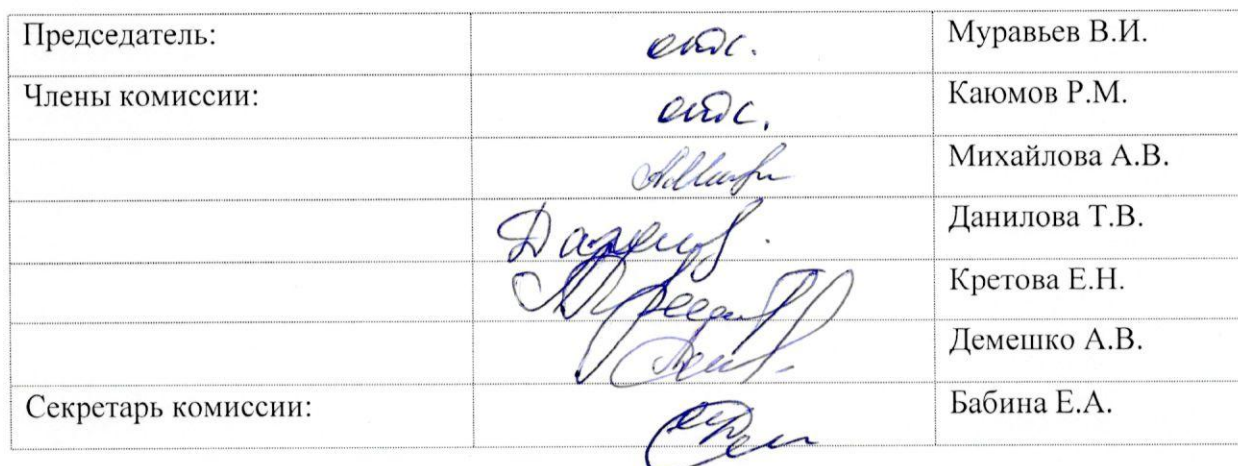 Председатель: отс. Муравьев В.И.
Члены комиссии: отс. Каюмов Р.М.
Михайлова А.В.
Данилова Т.В.
Кретова Е.Н.
Демешко А.В.
Секретарь комиссии: Бабина Е.А.